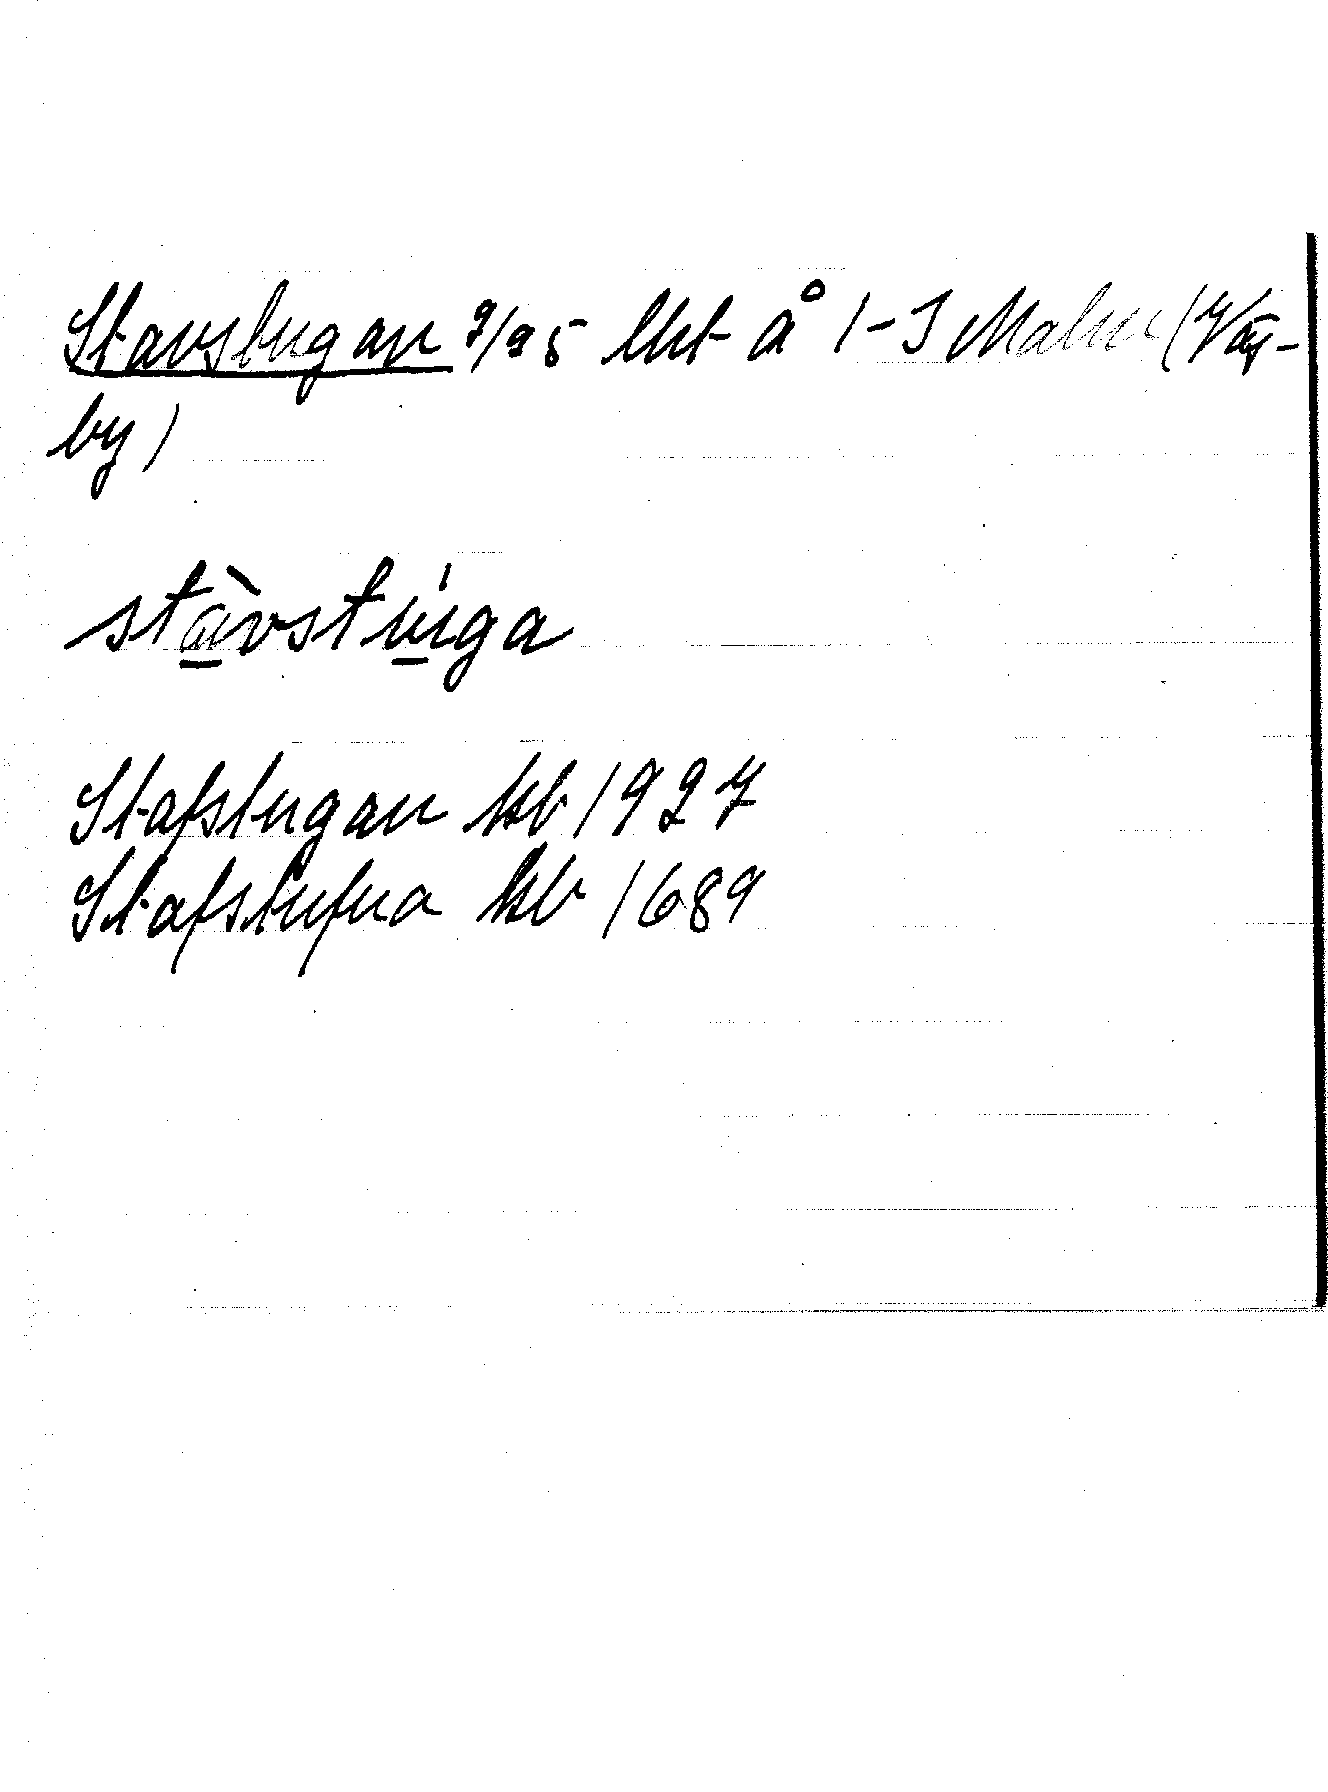 Stavstugan 9/95 lht å 1-3 Malm (Väs-
by)
stàvstúga
Stafstugan kb 1927
Stafstufua kb 1689